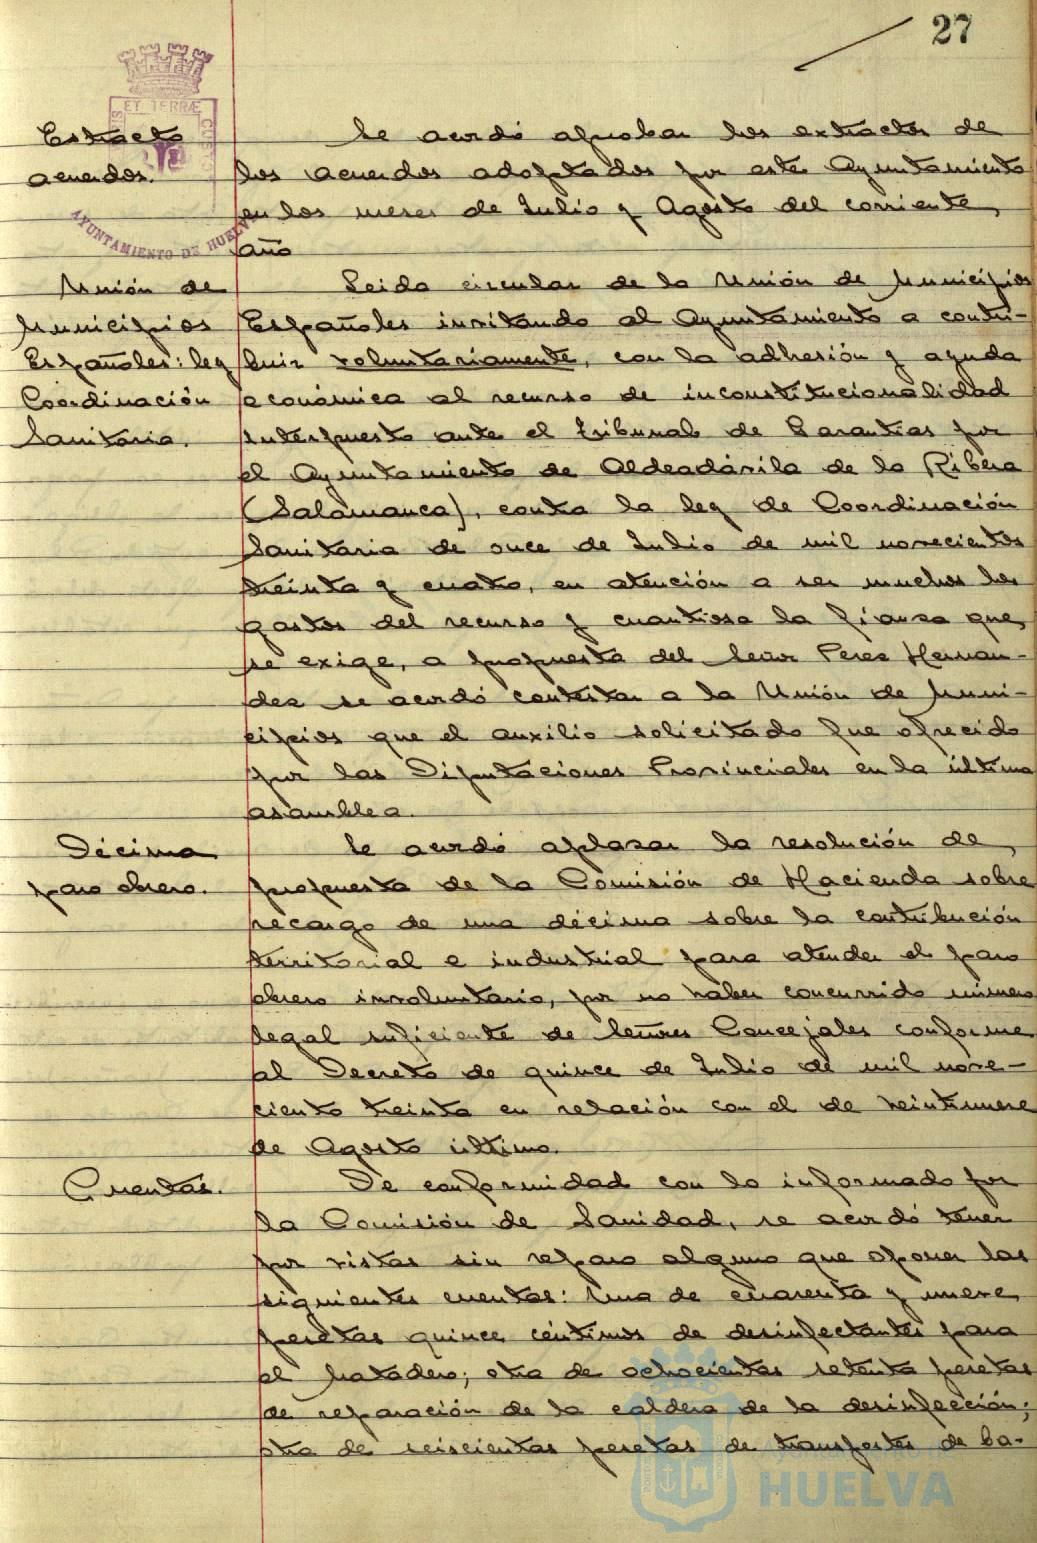 27
ET TERRÆ
CUSTO
AYUNTAMIENTO DE HUELVA
Extracto
acuerdos.
Se acordó aprobar los extractos de
los acuerdos adoptados por este Ayuntamiento
en los meses de Julio y Agosto del corriente
año
Unión de
Municipios
Españoles: ley
Coordinación
Sanitaria.
Leida circular de la Unión de Municipios
Españoles invitando al Ayuntamiento a contri-
buir voluntariamente, con la adhesión y ayuda
económica al recurso de inconstitucionalidad
interpuesto ante el Tribunal de Garantías por
el Ayuntamiento de Aldeadávila de la Ribera
(Salamanca), contra la ley de Coordinación
Sanitaria de once de Julio de mil novecientos
treinta y cuatro, en atención a ser muchos los
gastos del recurso y cuantiosa la fianza que
se exige, a propuesta del Señor Perez Hernan-
dez se acordó contestar a la Unión de Muni-
cipios que el auxilio solicitado fue ofrecido
por las Diputaciones Provinciales en la última
asamblea.
Décima
paro obrero.
Se acordó aplazar la resolución de
propuesta de la Comisión de Hacienda sobre
recargo de una décima sobre la contribución
territorial e industrial para atender el paro
obrero involuntario, por no haber concurrido número
legal suficiente de Señores Concejales conforme
al Decreto de quince de Julio de mil nove-
ciento treinta en relación con el de veintinueve
de Agosto último.
Cuentas.
De conformidad con lo informado por
la Comisión de Sanidad, se acordó tener
por vistas sin reparo alguno que oponer las
siguientes cuentas: Una de cuarenta y nueve
pesetas quince céntimos de desinfectantes para
el Matadero; otra de ochocientas setenta pesetas
de reparación de la caldera de la desinfección;
otra de seiscientas pesetas de transportes de ba-
Ayuntamiento de
HUELVA